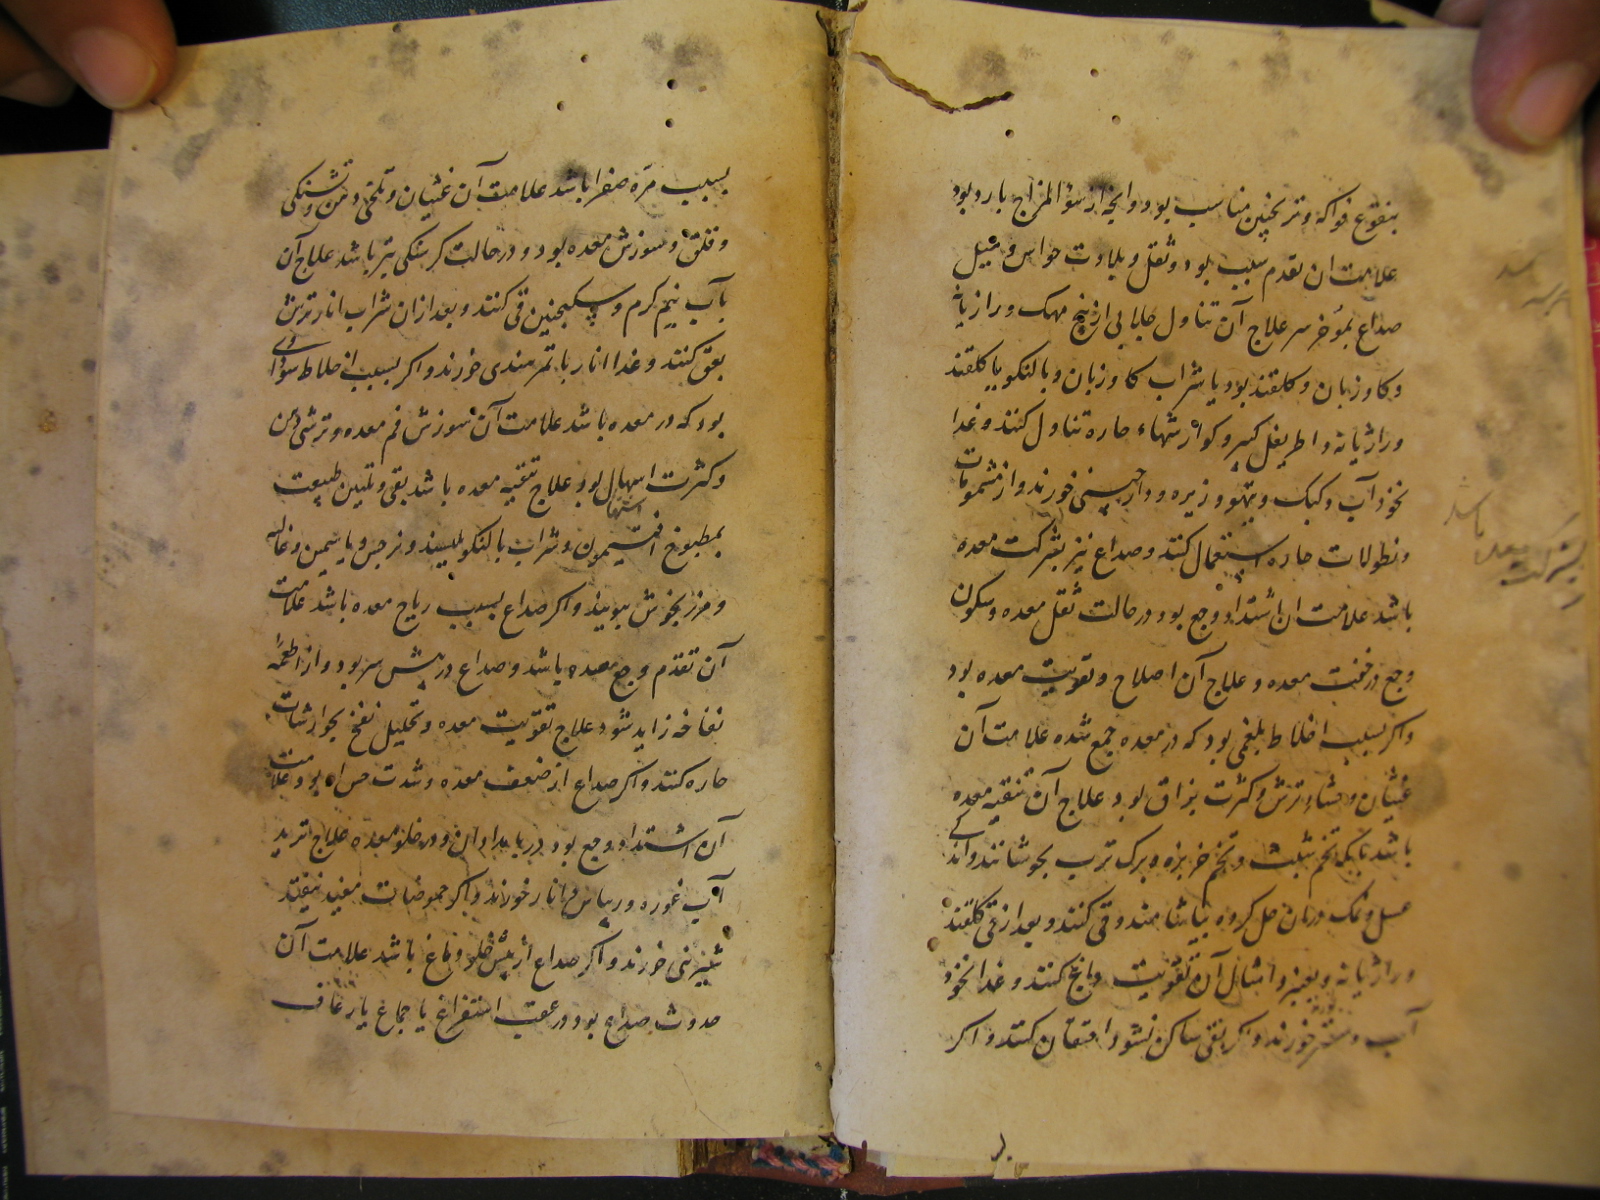 بنقوع فواکه و ترنجبین مناسب بود و آنچه از سؤ المزاج بارد بود
علامت ان تقدم سبب بود و ثقل و بلادت حواس و میل
صداع بمؤخر سر علاج آن تناول جلابی از بیخ مهک و رازیانه
و کاوزبان و کلقند بود یا شراب کاوزبان و بالنکو یا کلقند
و رازیانه و اطریفل کبیر و کوارشهاء حاره تناول کنند و غدا
نخوداب و کبک و تیهو و زیره و دارچینی خورند و از مشمومات
و نطولات حاره استعمال کنند و صداع نیز بشرکت معده
باشد علامت ان اشتداد وجع بود در حالت ثقل معده و سکون
وجع در خفت معده و علاج آن اصلاح و تقویت معده بود
و اکر بسبب اخلاط بلغمی بود که در معده جمع شده علامت آن
غثیان و جشاء ترش و کثرت بزاق بود علاج آن تنقیه معده
باشد بانکه تخم شبث و تخم خربزه و برک ترب بجوشانند و اندکی
عسل و نمک در ان حل کرده بیاشامند و قی کنند و بعد از قی کلقند
و رازیانه و امثال آن تقویت کنند و غدا نخود
آب خورند و اکر بقی ساکن نشود احتقان کنند و اکر
بشرکت معده باشد
بسبب مره صفرا باشد علامت آن غثیان و تلخی دهن و تشنکی
و قلق و سوزش معده بود و در حالت کرسنکی بتر باشد علاج آن
بآب نیم کرم و سکنجبین قی کنند و بعد از ان شراب انار ترش
لعق کنند و غدا انار با تمر هندی خورند و اکر بسبب اخلاط سوداوی
بود که در معده باشد علامت آن سوزش فم معده و ترشی دهن
و کثرت اسهال بود علاج تنقیه معده باشد بقی و تلیین طبیعت
اشتها
بمطبوخ افتیمون و شراب بالنکو و نرجس و یاسمین و غالیه
و مرزنجوش ببویند و اکر صداع بسبب ریاح معده باشد علامت
آن تقدم وجع معده باشد و صداع در پیش سر بود و از اطعمهٔ
نفاخه زاید شود علاج تقویت معده و تحلیل نفخ بجوارشات
حاره کنند و اکر صداع از ضعف معده و شدت حس او بود علامت
آن اشتداد وجع بود در بامدادان و در خلو معده علاج ترید
آب غوره و ریباس و انار خورند و اکر حموضات مفید نیفتد
شیرینی خورند و اکر صداع از یبس دماغ باشد علامت آن
حدوث صداع بود در عقب استفراغ یا جماع یا رعاف